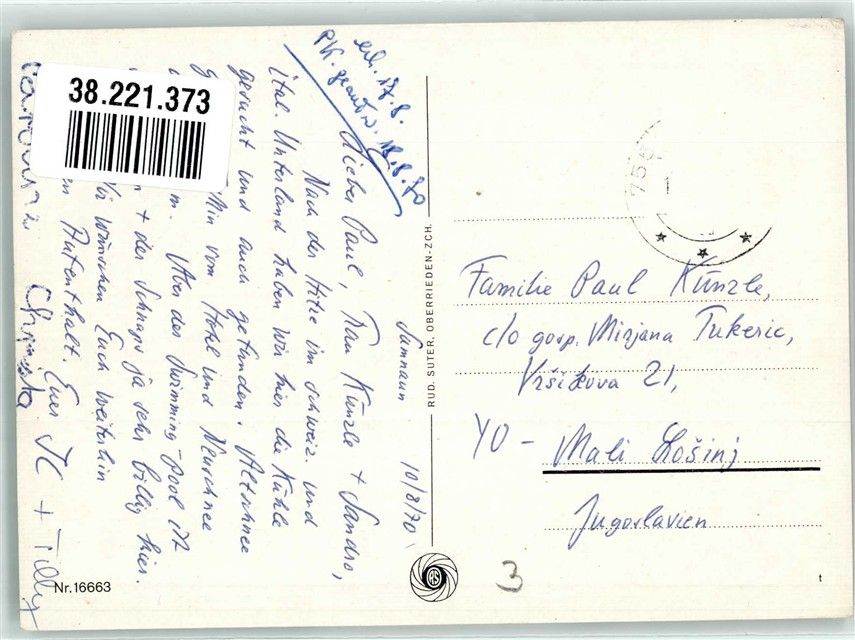 38.221.373
erh. 17.8.
PK. geantw. 18.8.70
Samnaun 10/8/70
Lieber Paul, Frau Künzle + Sandro,
Nach der Hitze im Schweiz. und
ital. Unterland haben wir hier die Kühle
gesucht und auch gefunden. Altschnee
Min vom Hotel und Neuschnee
m. Aber der Swimming-pool ist
+ der Schnaps ja sehr billig hier.
Wir wünschen Euch weiterhin
en Aufenthalt. Eure JC + Tilly
Christa
RUD. SUTER, OBERRIEDEN-ZCH.
RS
Nr. 16663
Familie Paul Künzle,
c/o gosp. Mirjana Tukeric,
Vršikova 21,
YU - Mali Lošinj
Jugoslavien
3
t